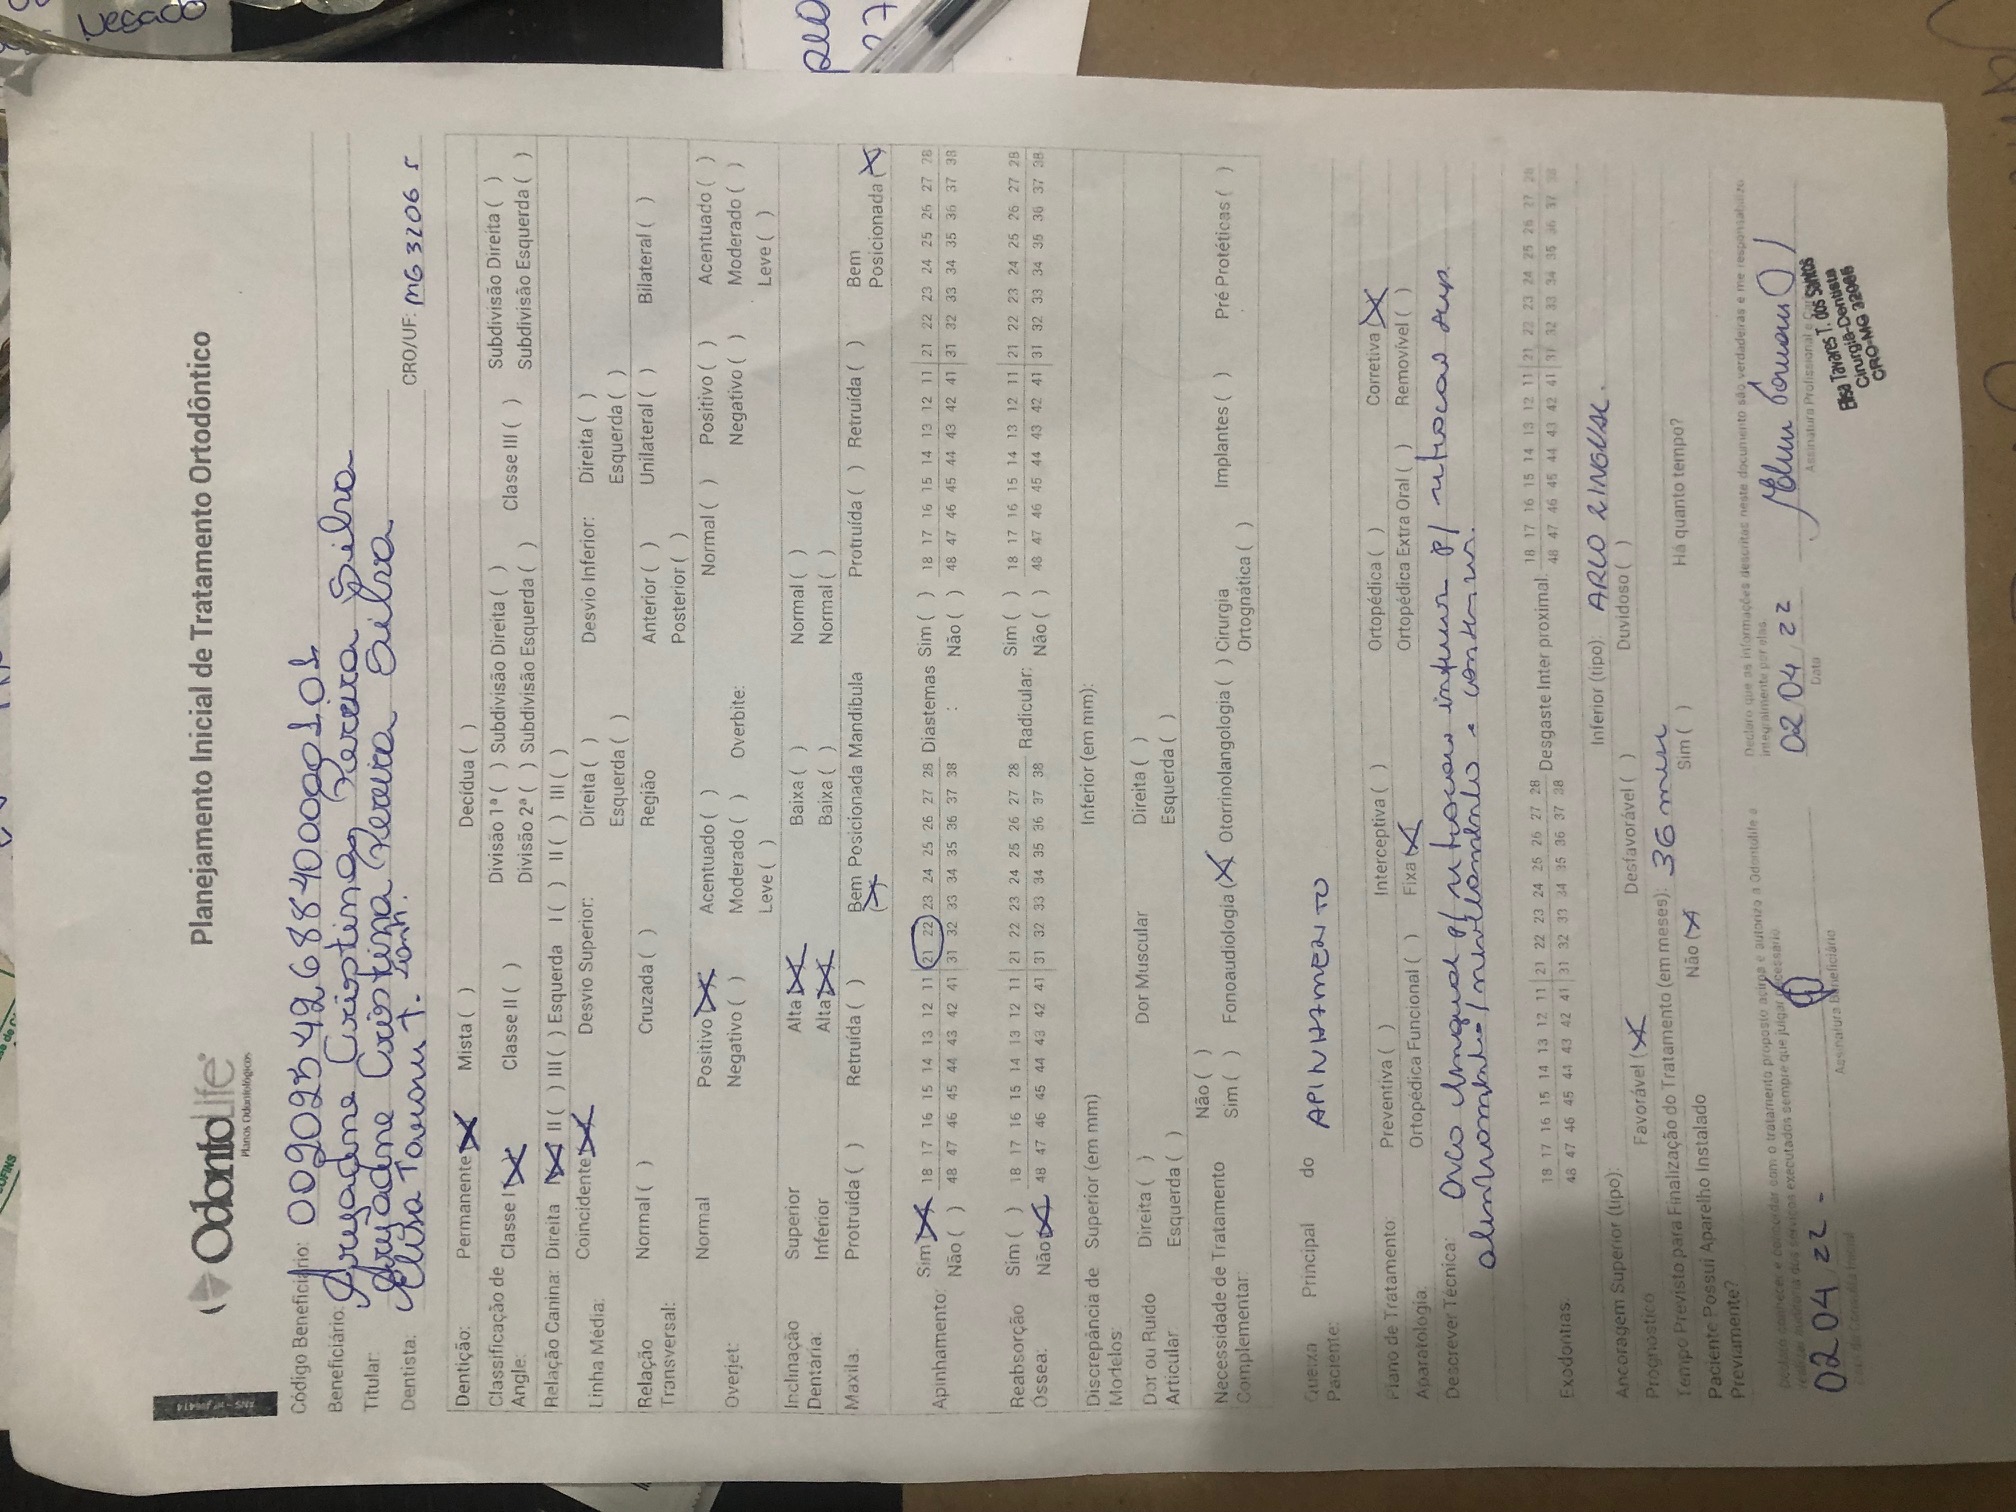 OdontoLife
Planos Odontológicos
Planejamento Inicial de Tratamento Ortodôntico
Código Beneficiário: 00202542688400000101
Beneficiário: Cristina Pereira Silva
Titular: Cristina Pereira Silva
Dentista: Elisa T. CRO/UF: MG 32065
Dentição: Permanente (X) Mista ( ) Decídua ( )
Classificação de Angle: Classe I (X) Classe II ( ) Divisão 1ª ( ) Subdivisão Direita ( ) Classe III ( ) Subdivisão Direita ( )
Divisão 2ª ( ) Subdivisão Esquerda ( ) Subdivisão Esquerda ( )
Relação Canina: Direita I (X) II ( ) III ( ) Esquerda I ( ) II ( ) III ( )
Linha Média: Coincidente (X) Desvio Superior: Direita ( ) Desvio Inferior: Direita ( )
Esquerda ( ) Esquerda ( )
Relação Transversal: Normal ( ) Cruzada ( ) Região Anterior ( ) Unilateral ( ) Bilateral ( )
Posterior ( )
Overjet: Normal Positivo (X) Acentuado ( ) Overbite: Normal ( ) Positivo ( ) Acentuado ( )
Negativo ( ) Moderado ( ) Negativo ( ) Moderado ( )
Leve ( ) Leve ( )
Inclinação Dentária: Superior Alta (X) Baixa ( ) Normal ( )
Inferior Alta (X) Baixa ( ) Normal ( )
Maxila: Protruída ( ) Retruída ( ) Bem Posicionada (X) Mandíbula Protruída ( ) Retruída ( ) Bem Posicionada (X)
Apinhamento: Sim (X) 18 17 16 15 14 13 12 11 | 21 22 23 24 25 26 27 28 Diastemas : Sim ( ) 18 17 16 15 14 13 12 11 | 21 22 23 24 25 26 27 28
Não ( ) 48 47 46 45 44 43 42 41 | 31 32 33 34 35 36 37 38 Não ( ) 48 47 46 45 44 43 42 41 | 31 32 33 34 35 36 37 38
Reabsorção Óssea: Sim ( ) 18 17 16 15 14 13 12 11 | 21 22 23 24 25 26 27 28 Radicular: Sim ( ) 18 17 16 15 14 13 12 11 | 21 22 23 24 25 26 27 28
Não (X) 48 47 46 45 44 43 42 41 | 31 32 33 34 35 36 37 38 Não ( ) 48 47 46 45 44 43 42 41 | 31 32 33 34 35 36 37 38
Discrepância de Modelos: Superior (em mm) Inferior (em mm):
Dor ou Ruído Articular: Direita ( ) Dor Muscular Direita ( )
Esquerda ( ) Esquerda ( )
Necessidade de Tratamento Complementar: Não ( ) Fonoaudiologia (X) Otorrinolangologia ( ) Cirurgia Ortognática ( ) Implantes ( ) Pré Protéticas ( )
Sim ( )
Queixa Principal do Paciente: APINHAMENTO
Plano de Tratamento: Preventiva ( ) Interceptiva ( ) Ortopédica ( ) Corretiva (X)
Aparatologia: Ortopédica Funcional ( ) Fixa (X) Ortopédica Extra Oral ( ) Removível ( )
Descrever Técnica: Arco lingual p/ inferior p/ sup.
alinhamento / nivelamento
Exodontias: 18 17 16 15 14 13 12 11 | 21 22 23 24 25 26 27 28 Desgaste Inter proximal: 18 17 16 15 14 13 12 11 | 21 22 23 24 25 26 27 28
48 47 46 45 44 43 42 41 | 31 32 33 34 35 36 37 38 48 47 46 45 44 43 42 41 | 31 32 33 34 35 36 37 38
Ancoragem Superior (tipo): Inferior (tipo): ARCO LINGUAL.
Prognóstico Favorável (X) Desfavorável ( ) Duvidoso ( )
Tempo Previsto para Finalização do Tratamento (em meses): 36 meses
Paciente Possui Aparelho Instalado Previamente? Não (X) Sim ( ) Há quanto tempo?
Declaro que as informações descritas neste documento são verdadeiras e me responsabilizo integralmente por elas.
02 04 22
Assinatura Beneficiário
02,04,22
Data
Assinatura Profissional e
Elisa Tavares T. dos Santos
Cirurgiã-Dentista
CRO-MG 32065